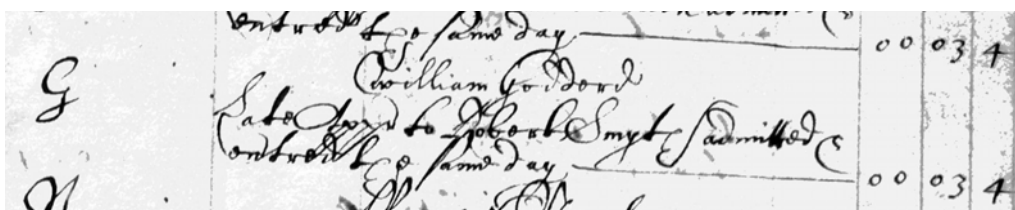 entred the same day 00 03 4
G
William Godderd
Late Appr to Robert Smyth admitted &
entred the same day 00 03 4